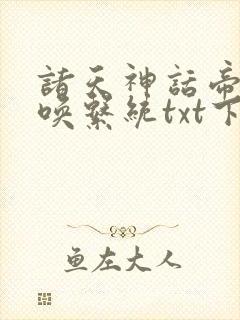 諸天神話帝
喚繫統txt下
鱼左大人